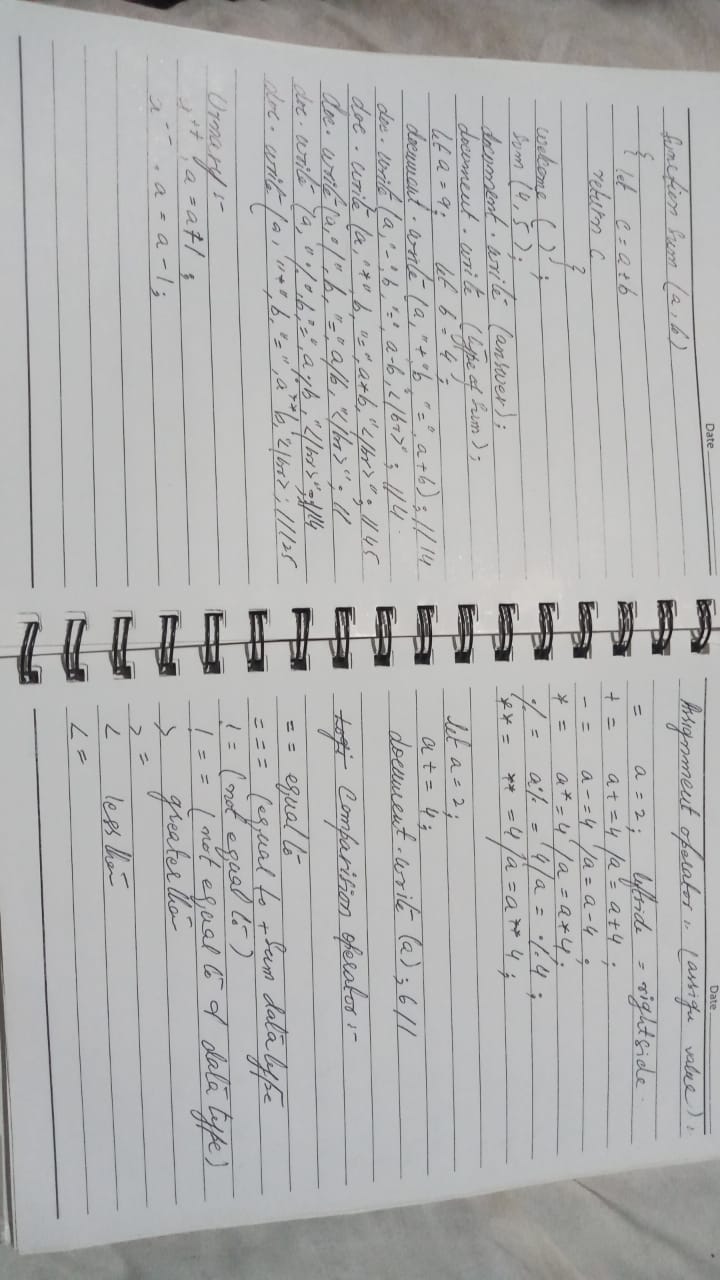 Date
function sum (a, b)
{ let c = a+b
return c
}
welcome ( ) ;
sum (4, 5) ;
document . write (answer) ;
document . write (type of sum) ;
let a = 9; let b = 4 ;
document . write (a, "+" b "=", a+b) ; // 14
doc . write (a, "-", b, "=", a-b, "</br>" ; // 4 .
doc . write (a, "*" b, "=", a*b, "</br>" ; // 45
doc . write (a, "/", b, "=", a/b, "</br>" ; //
doc . write (a, "%", b, "=", a%b, "</br>" ; // 4
doc . write (a, "**", b, "=", a**b, "</br> ; // 125
Urinary :-
x++ , a = a+1 ;
x-- , a = a-1 ;
Date
Assignment operator :- (assign value) :
= a = 2 ; leftside = rightside .
+= a+=4 / a = a+4 ;
-= a-=4 / a = a-4 ;
*= a*=4 / a = a*4 ;
%= a%=4 / a = %4 ;
**= **=4 / a = a**4 ;
let a = 2 ;
a+=4 ;
document . write (a) ; 6 //
Comparition operator :-
== equal to
=== (equal to + sum data type
!= (not equal to)
!== (not equal to & data type)
> greater than
>=
< less than
<=